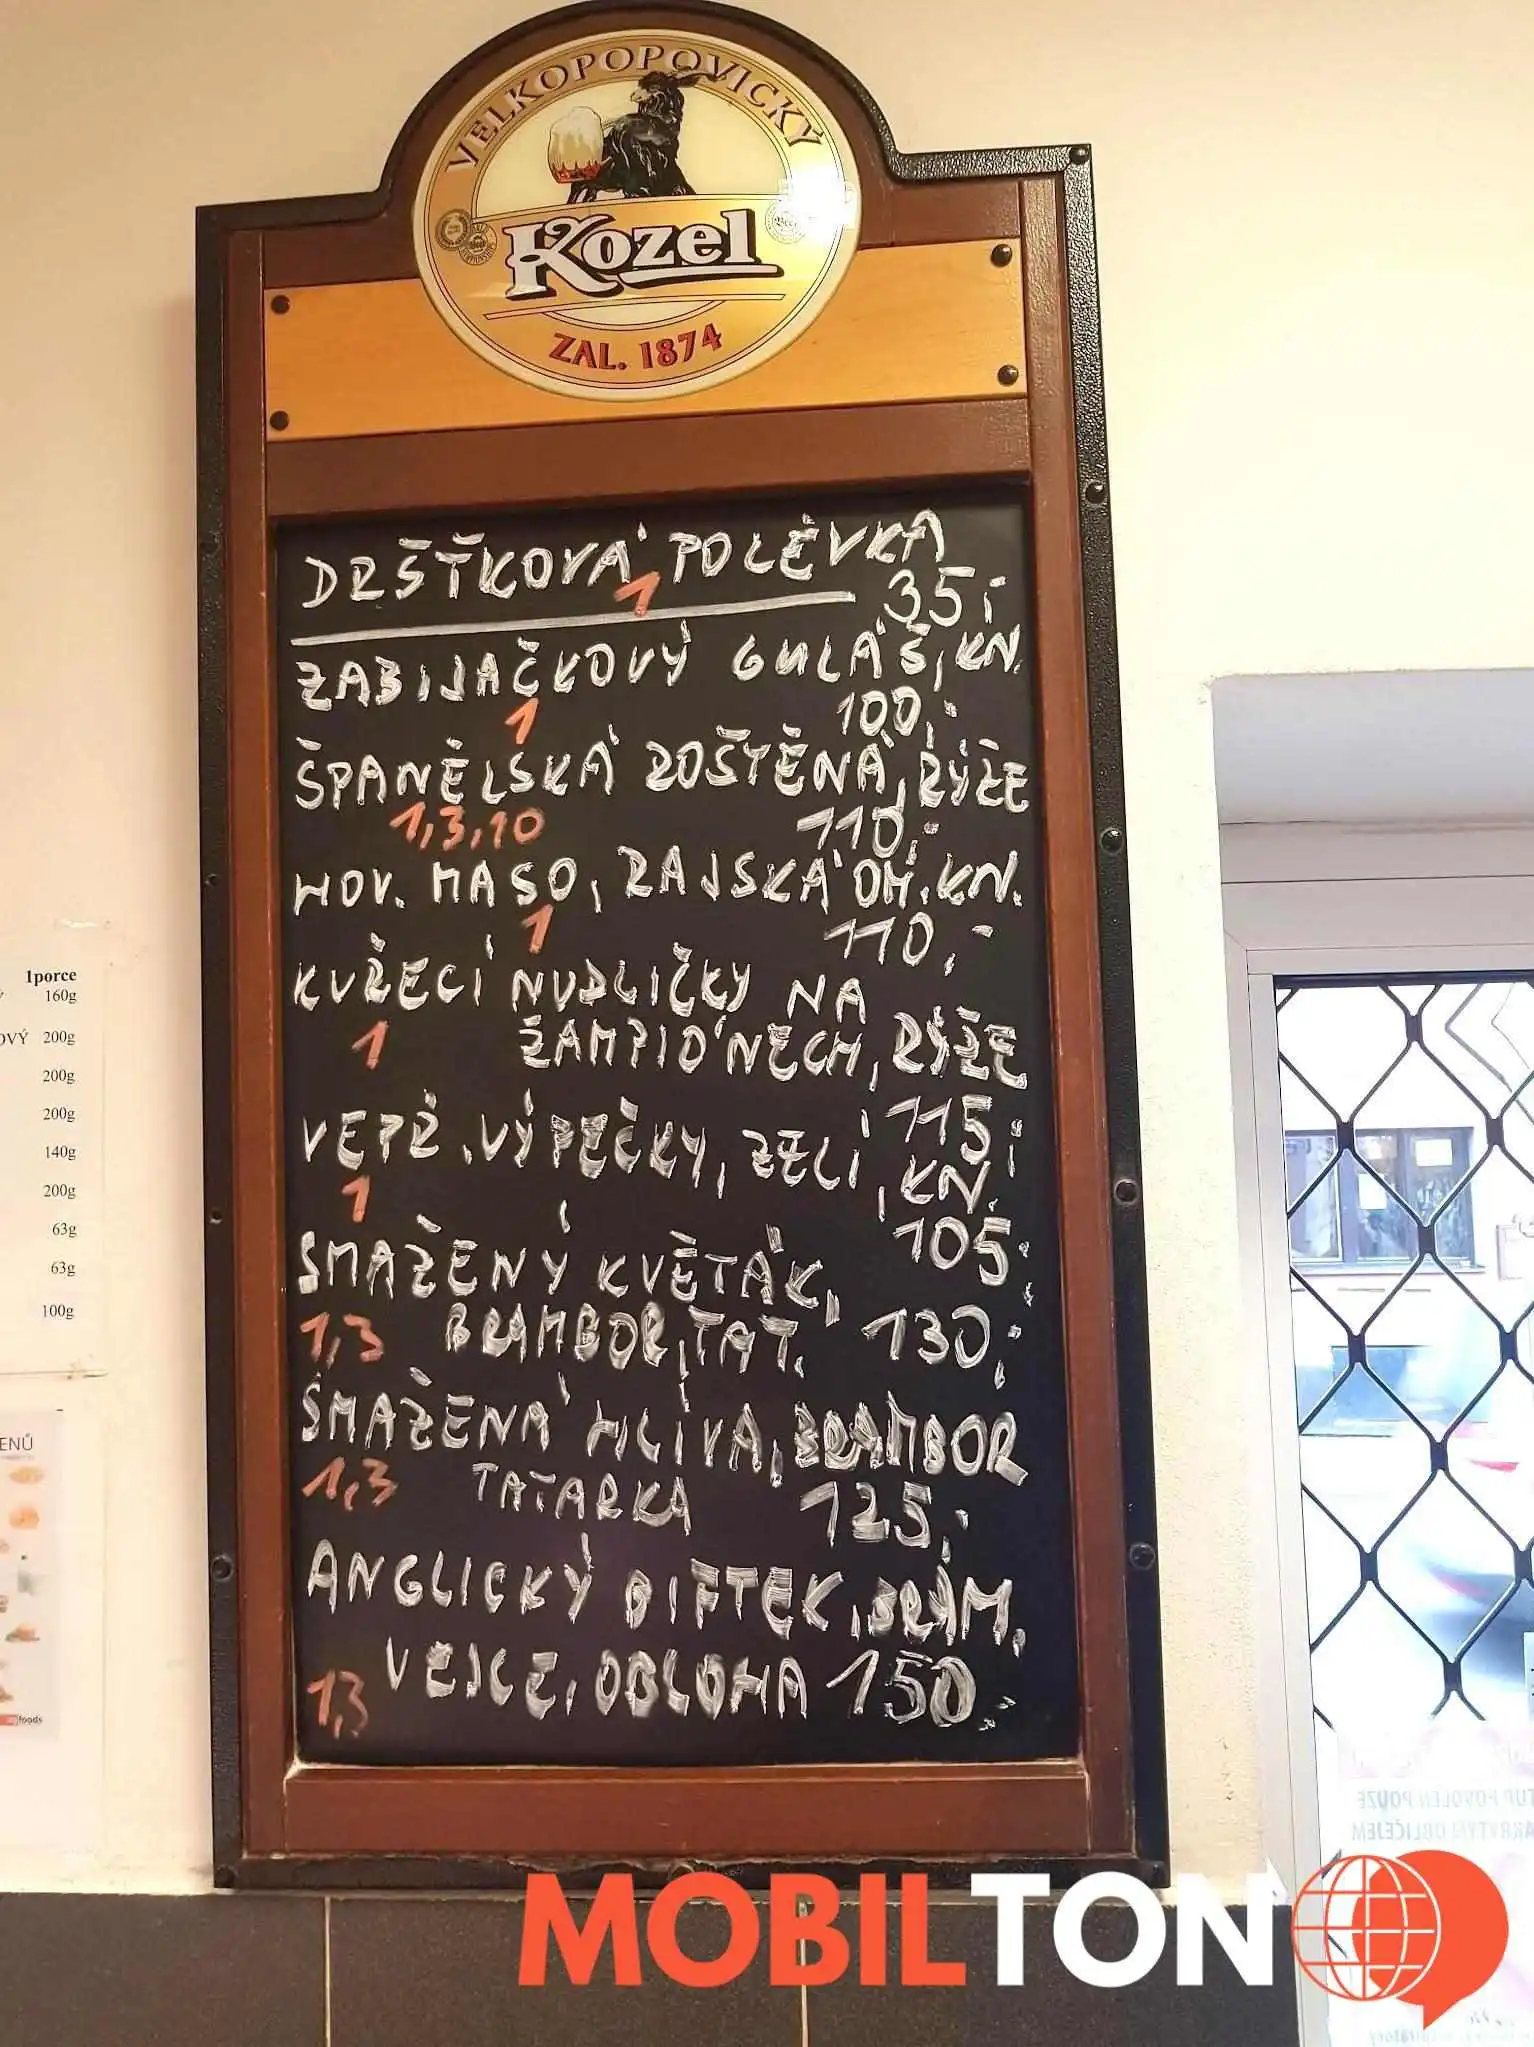 VELKOPOPOVICKÝ
Kozel
ZAL. 1874
DRŠŤKOVÁ POLÉVKA
1 35,-
ZABIJAČKOVÝ GULÁŠ, KN.
1 100,-
ŠPANĚLSKÁ ROŠTĚNÁ, RÝŽE
1,3,10 110,-
HOV. MASO, RAJSKÁ OM. KN.
1 110,-
KUŘECÍ NUDLIČKY NA
1 ŽAMPIÓNECH, RÝŽE
115,-
VEPŘ. VÝPEČKY, ZELÍ, KN.
1 105,-
SMAŽENÝ KVĚTÁK,
1,3 BRAMBOR, TAT. 130,-
SMAŽENÁ HLÍVA, BRAMBOR
1,3 TATARKA 125,-
ANGLICKÝ BIFTEK, BRAM,
1,3 VEJCE, OBLOHA 150,-
1porce
160g
OVÝ 200g
200g
200g
140g
200g
63g
63g
100g
ENŮ
foods
TUP POVOLEN POUZE
AKRYTÝM OBLIČEJEM
MOBILTON